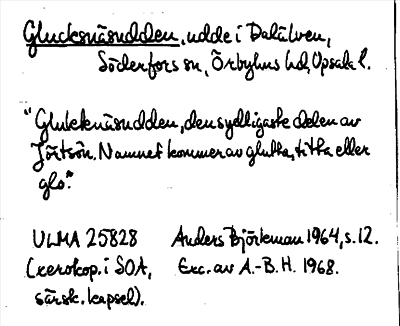 Glucknäsudden, udde i Dalälven,
Söderfors sn, Örbyhus hd, Upsala l.
"Gluteknäsudden, den sydligaste delen av
Jörtsön. Namnet kommer av glutta, titta eller
glo."
ULMA 25828 Anders Björkman 1964, s. 12.
(xerokop. i SOA, Exc. av A.-B. H. 1968.
särsk. kapsel).